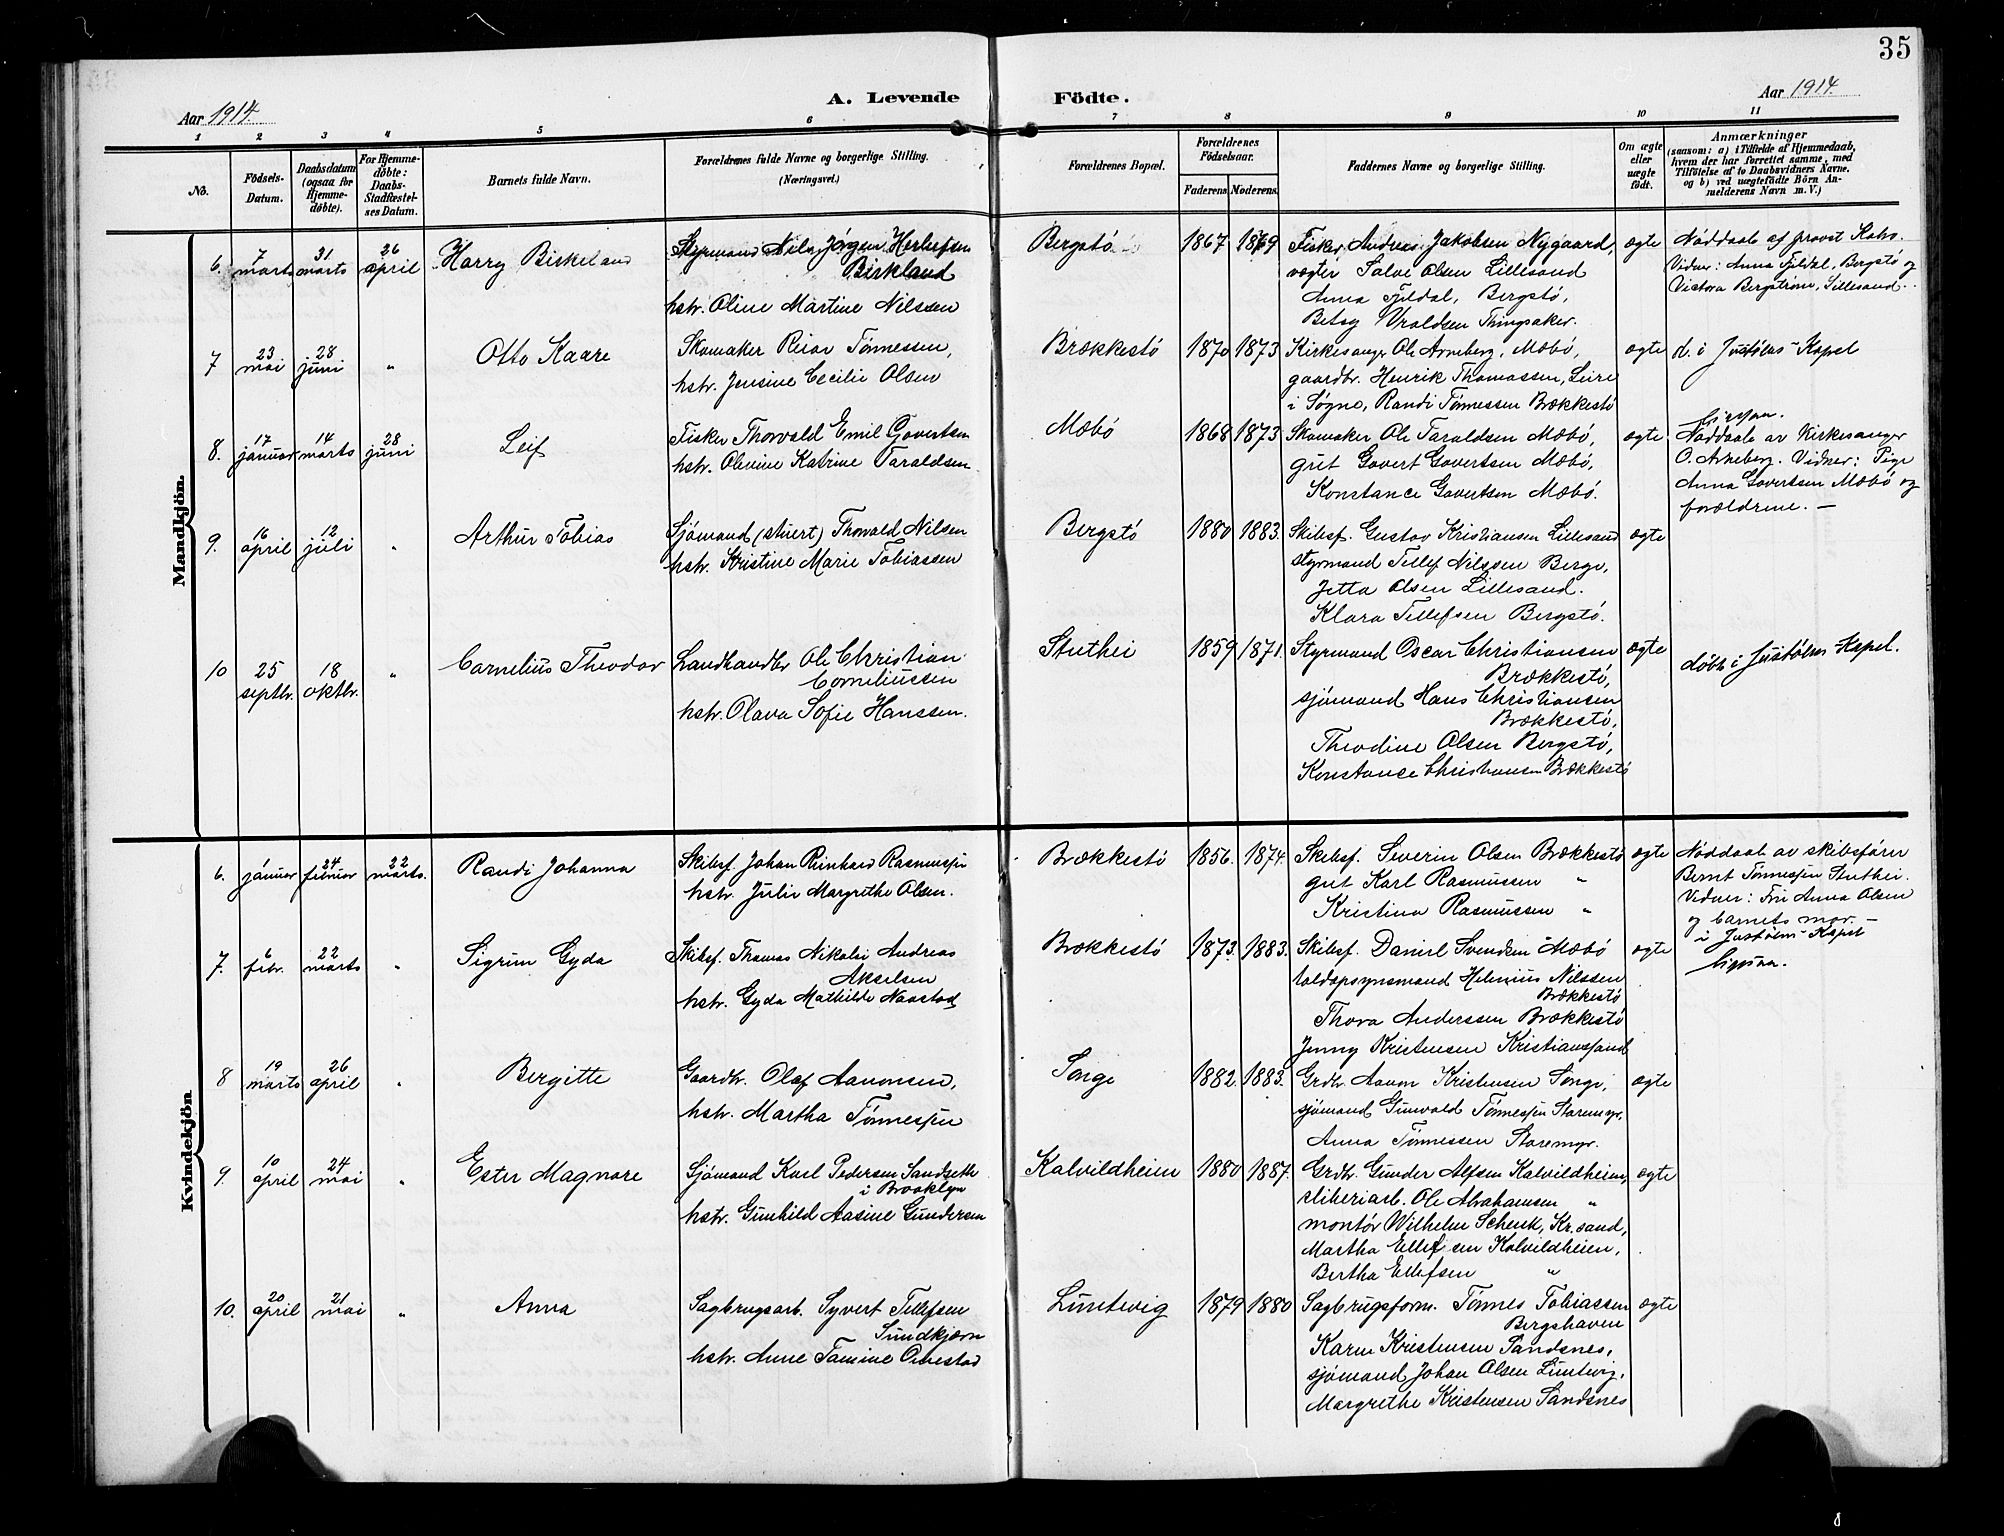 35
Aar 1914.
A. Levende
Födte.
Aar 1914.
1 2 3 4 5 6 7 8 9 10 11
No.
Födsels-Datum.
Daabsdatum (ogsaa for Hjemme-døbte).
For Hjemme-døbte: Daabs-Stadfæstel-ses Datum.
Barnets fulde Navn.
Forældrenes fulde Navne og borgerlige Stilling.
(Næringsvei.)
Forældrenes Bopæl.
Forældrenes Födselsaar.
Faderens. Moderens.
Faddernes Navne og borgerlige Stilling.
Om ægte eller uægte födt.
Anmærkninger
(saasom: a) i Tilfælde af Hjemmedaab,
hvem der har forrettet samme, med
Tilföielse af to Daabsvidners Navne,
og b) ved uægtefödte Börn An-
melderens Navn m. V.)
Mandkjön.
6. 7 marts 31 marts 26 april Harry Birkeland Styrmand Nils Jörgen Herlefsen
Birkland
hstr. Oline Martine Nilssen
Bergstö 1867 1869 Fisker Andreas Jakobsen Nygaard, ægte Nöddaab af provst
vægter Salve Olsen Lillesand Vidner: Anna Fjeldal, Bergstö og
Anna Fjeldal, Bergstö, Victora Bergström, Lillesand.
Betsy Uraldsen Tingsaker.
7 23 mai 28 juni " Otto Kaare Skomaker Reiar Tönnessen,
hstr. Jensine Cecilie Olsen
Brækkestö 1870 1873 Kirkesanger Ole Arneberg, Mæbö, ægte d. i Justöens Kapel
gaardbr. Henrik Thomassen, Leire
i Søgne, Randi Tönnessen Brækkestö
8. 17 januar 14 marts 28 juni Leif Fisker Thorvald Emil Govertsen
hstr. Olevine Katrine Taraldsen
Mæbö 1868 1873 Skomaker Ole Taraldsen Mæbö, ægte Nöddaab av Kirkesanger
gut Govert Govertsen Mæbö, O. Arneberg. Vidner: Pige
Konstance Govertsen Mæbö. Anna Govertsen Mæbö og
forældrene. —
9. 16 april 12 juli " Arthur Tobias Sjömand (stuert) Thorvald Nilsen
hstr. Kristine Marie Tobiassen
Bergstö 1880 1883. Skibsf. Gustav Kristiansen Lillesand ægte
styrmand Tellef Nilssen Berge,
Jetta Olsen Lillesand.
Klara Tellefsen Bergstö.
10 25 septbr. 18 oktbr. " Cornelius Theodor Landhandlr Ole Christian
Corneliussen
hstr. Olava Sofie Hanssen.
Stuthei 1859 1871. Styrmand Oscar Christiansen ægte döbt i Justöens Kapel.
Brækkestö,
sjömand Hans Christiansen
Brækkestö,
Theodine Olsen Bergstö,
Konstance Christiansen Brækkestö
Kvindekjön.
6. januar 24 februar 22 marts. Randi Johanna Skibsf. Johan Reinhard Rasmussen
hstr. Julie Margrethe Olsen.
Brækkestö 1856. 1874. Skibsf. Severin Olsen Brækkestö ægte Nöddaab av skibsförer
gut Karl Rasmussen " Bernt Tönnessen Stuthei.
Kristina Rasmussen " Vidner: Fru Anna Olsen
og barnets mor. —
i Justöens Kapel
7. 6 febr. 22 marts " Sigrun Gyda Skibsf. Thomas Nikolai Andreas
Akselsen
hstr. Gyda Mathilde Naastad
Brækkestö 1873. 1883. Skibsf. Daniel Svendsen Mæbö ægte
toldopsynsmand Helenius Nilssen
Brækkestö
Thora Anderssen Brækkestö
Jenny Kristensen Kristianssand
8 19 marts 26 april " Bergitte Gaardbr. Olaf Aanonsen,
hstr. Martha Tönnessen
Songe 1882. 1883. Grdbr. Aanon Kristensen Songe, ægte
sjömand Gunvald Tönnessen Staremyr,
Anna Tönnessen Staremyr.
9. 10 april 24 mai " Ester Magnore Sjömand Karl Pedersen Sandsette
i Brooklyn
hstr. Gunhild Aasine Gundersen
Kalvildheien 1880 1887. Grdbr. Gunder Alfsen Kalvildheien, ægte
sliberiarb. Ole Abrahamsen "
montör Wilhelm Schenk, Kr.sand,
Martha Ellefsen Kalvildheien,
Bertha Ellefsen "
10. 20 april 21 mai " Anna Sagbrugsarb. Syvert Tellefsen
Sundkjærn
hstr. Anne Tamine Omestad
Luntevig 1879 1880 Sagbrugsform. Tönnes Tobiassen ægte
Bergshaven
Karen Kristensen Sandsnes,
sjömand Johan Olsen Luntevig,
Margrethe Kristensen Sandsnes